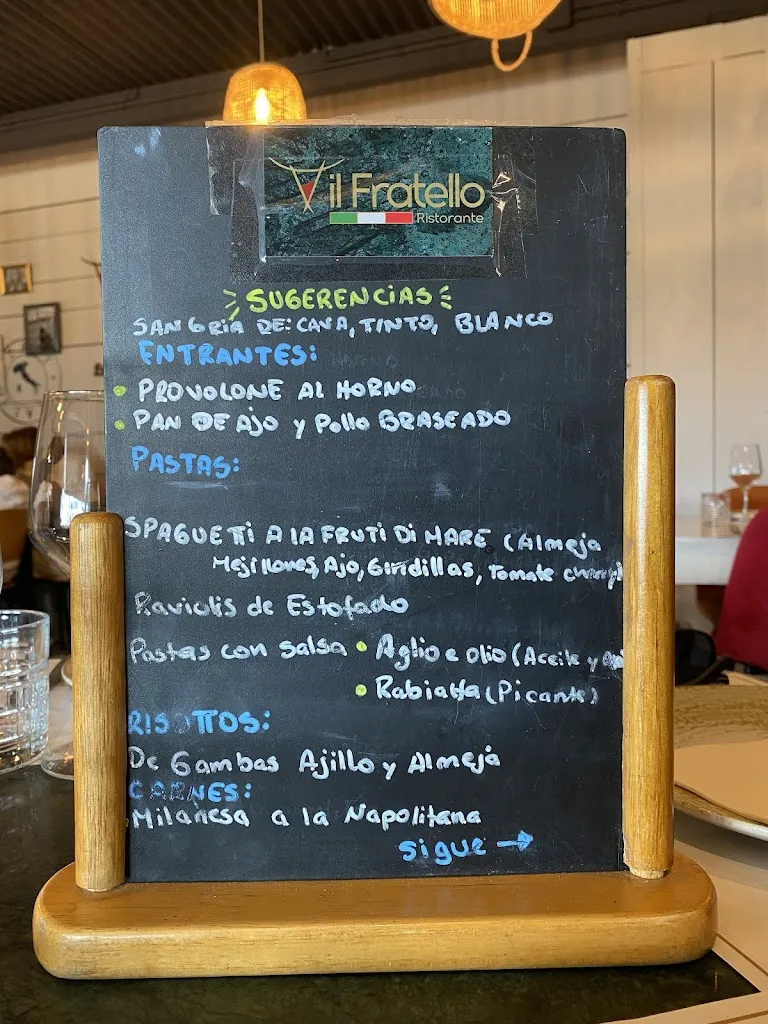 il Fratello
Ristorante
SUGERENCIAS
SANGRIA DE: CAVA, TINTO, BLANCO
ENTRANTES:
• PROVOLONE AL HORNO
• PAN DE AJO y Pollo BRASEADO
PASTAS:
SPAGUETTI A LA FRUTI DI MARE (Almeja
Mejillones, Ajo, Gindillas, Tomate cherry)
Raviolis de Estofado
Pastas con salsa • Aglio e olio (Aceite y
• Rabiatta (Picante)
RISOTTOS:
De Gambas Ajillo y Almeja
CARNES:
Milanesa a la Napolitana
sigue →